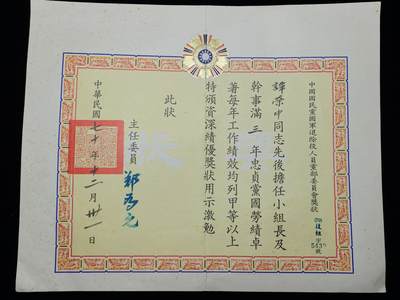 中國國民黨國軍退除役人員黨部委員會獎狀
復組字
5437號
譚榮中同志先後擔任小組長及
幹事滿三年忠貞黨國勞績卓
著每年工作績效均列甲等以上
特頒資深績優獎狀用示激勉
此狀
主任委員
中華民國七十年十二月卅一日